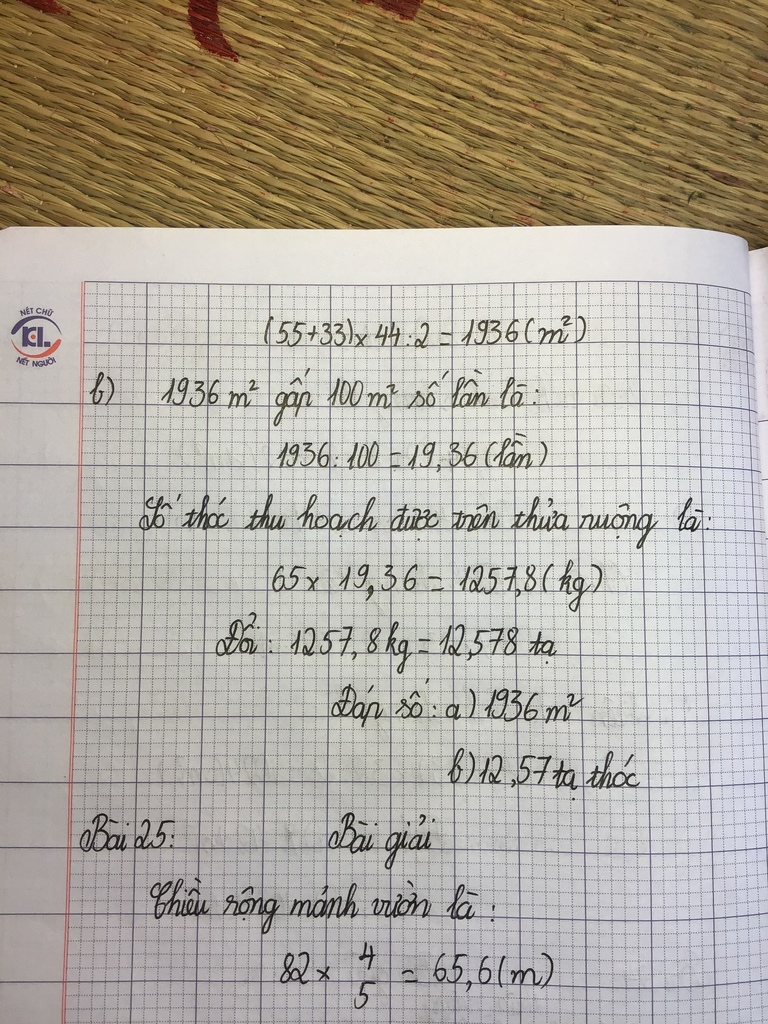 NÉT CHỮ
KL
NẾT NGƯỜI
(55+33) x 44 : 2 = 1936 (m²)
b) 1936 m² gấp 100 m² số lần là:
1936 : 100 = 19,36 (lần)
Số thóc thu hoạch được trên thửa ruộng là:
65 x 19,36 = 1257,8 (kg)
Đổi : 1257,8 kg = 12,578 tạ
Đáp số : a) 1936 m²
b) 12,57 tạ thóc
Bài 25: Bài giải
Chiều rộng mảnh vườn là :
82 x 4/5 = 65,6 (m)